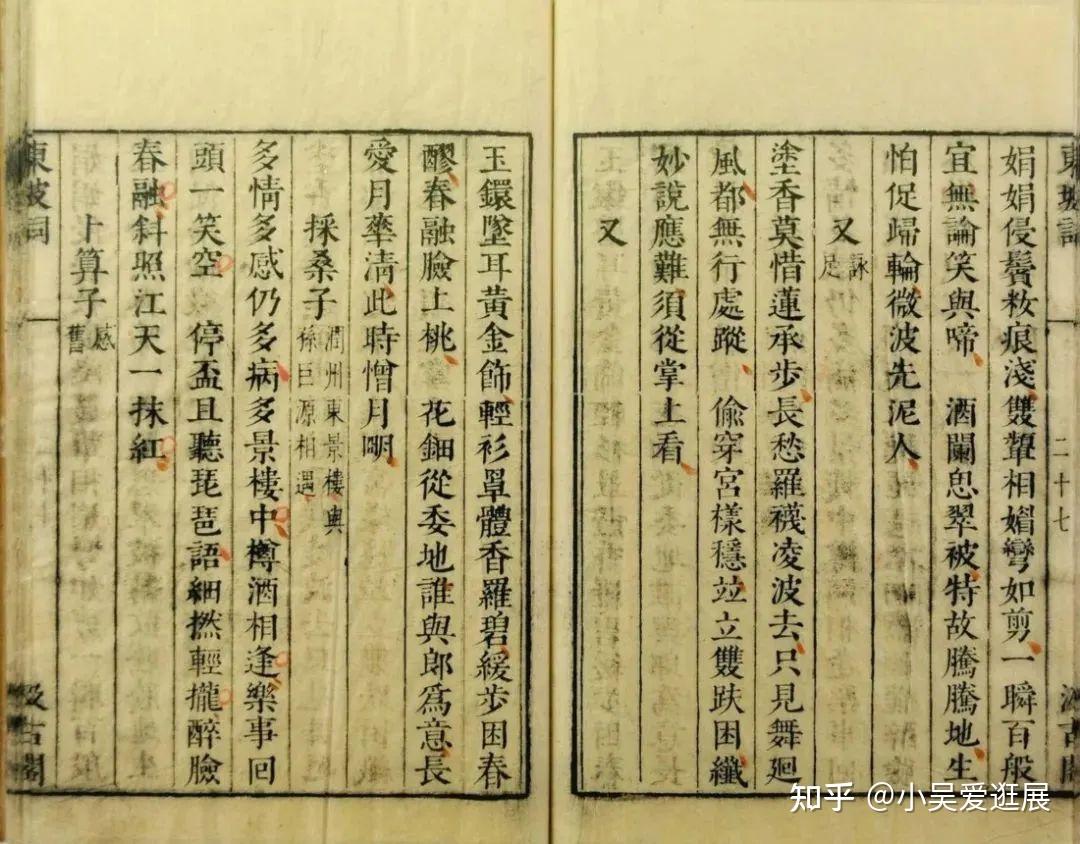 東坡詞
二十七
汲古閣
娟娟侵鬢妝痕淺雙顰相媚彎如剪一瞬百般
宜無論笑與啼　酒闌思翠被特故騰騰地生
怕促歸輪微波先泥人
又詠足
塗香莫惜蓮承步長愁羅襪凌波去只見舞廻
風都無行處蹤　偷穿宮樣穩竝立雙趺困纖
妙說應難須從掌上看
又
玉鐶墜耳黃金飾輕衫罩體香羅碧緩步困春
醪春融臉上桃　花鈿從委地誰與郎爲意長
愛月華淸此時憎月朙
採桑子潤州東景樓與孫巨源相遇
多情多感仍多病多景樓中樽酒相逢樂事回
頭一笑空　停盃且聽琵琶語細撚輕攏醉臉
春融斜照江天一抹紅
卜算子感舊
東坡詞
一
汲古閣
知乎 @小吴爱逛展